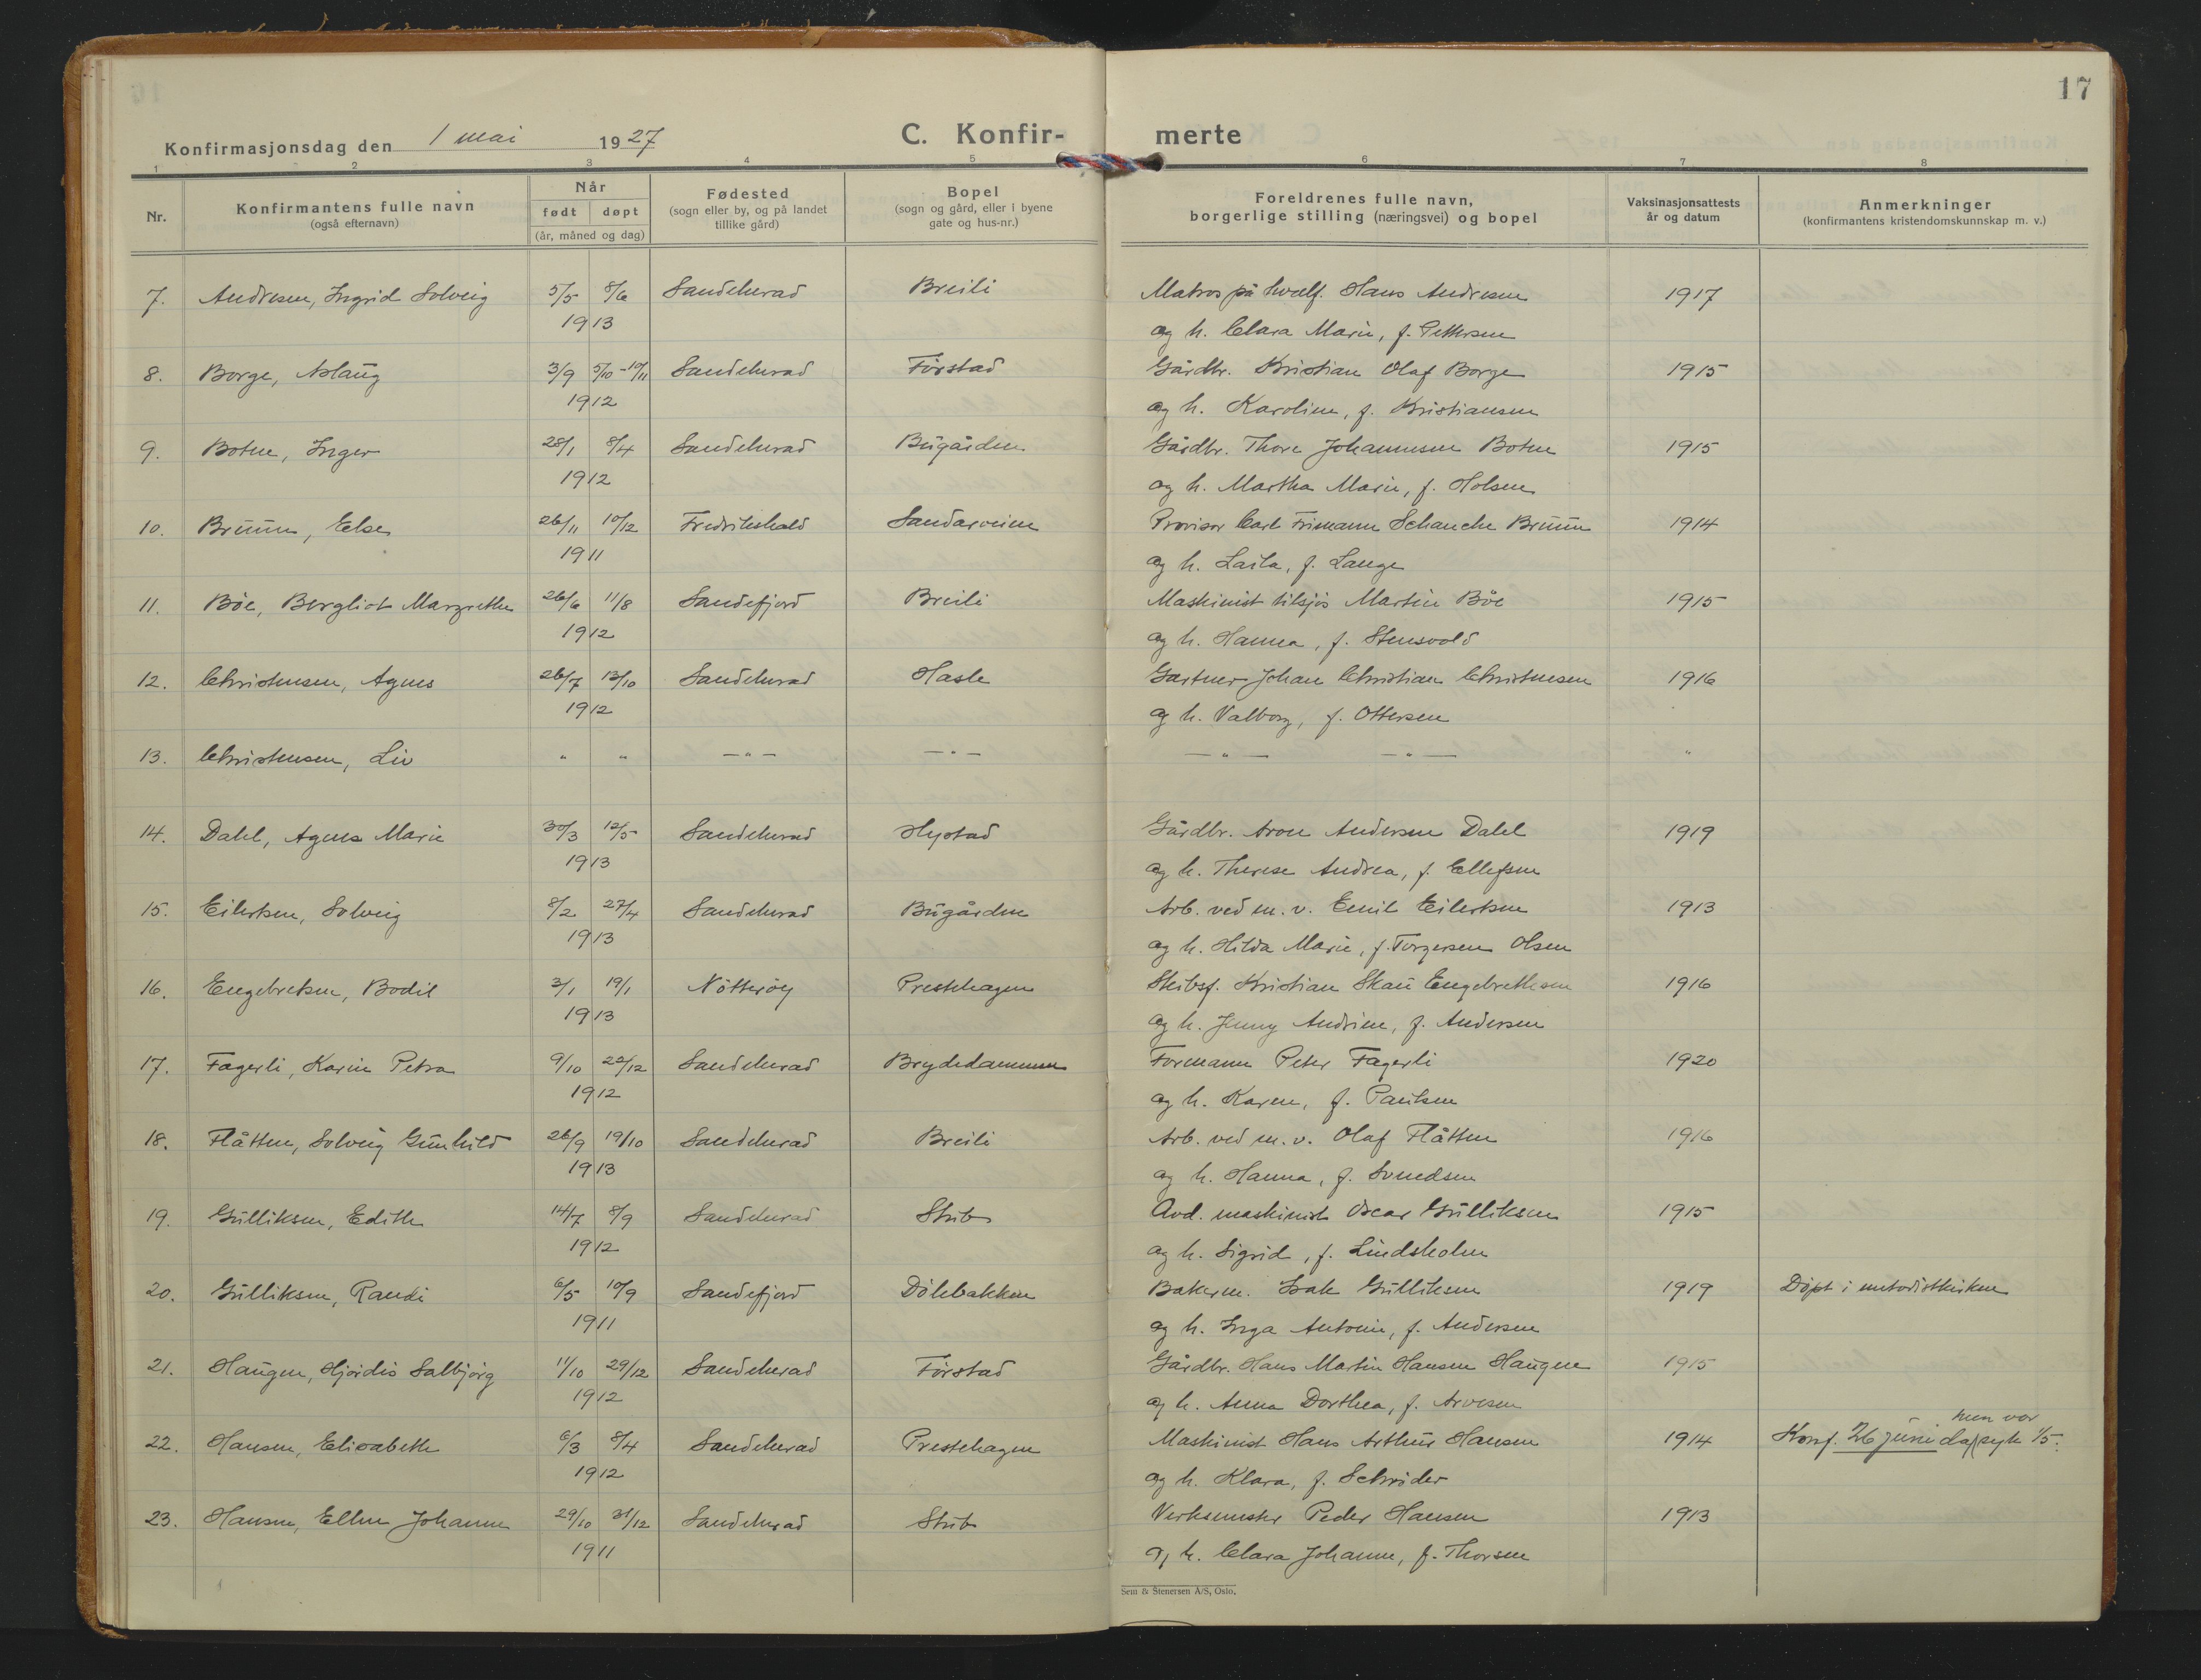 17
Konfirmasjonsdag den 1 mai 1927
C. Konfir- merte
1 2 3 4 5 6 7 8
Nr.
Konfirmantens fulle navn
(også efternavn)
Når
født døpt
(år, måned og dag)
Fødested
(sogn eller by, og på landet
tillike gård)
Bopel
(sogn og gård, eller i byene
gate og hus-nr.)
Foreldrenes fulle navn,
borgerlige stilling (næringsvei) og bopel
Vaksinasjonsattests
år og datum
Anmerkninger
(konfirmantens kristendomskunnskap m. v.)
7. Andresen, Ingrid Solveig 5/5 8/6 Sandeherad Breili Matros på hvalf. Hans Andresen 1917
1913 og h. Clara Marie, f. Pettersen
8. Borge, Aslaug 3/9 5/10 - 10/11 Sandeherad Førstad Gårdbr. Kristian Olaf Borge 1915
1912 og h. Karoline, f. Kristiansen
9. Botne, Inger 28/1 8/4 Sandeherad Bugården Gårdbr. Thore Johannesen Botne 1915
1912 og h. Martha Marie, f. Holsen
10. Bruun, Else 26/11 10/12 Fredrikshald Sandarveien Provisor Carl Frimann Schanche Bruun 1914
1911 og h. Laila, f. Lange
11. Bøe, Bergliot Margrethe 26/6 11/8 Sandefjord Breili Maskinist tilsjøs Martin Bøe 1915
1912 og h. Hanna, f. Stensvold
12. Christensen, Agnes 26/7 13/10 Sandeherad Hasle Gartner Johan Christian Christensen 1916
1912 og h. Valborg, f. Ottersen
13. Christensen, Liv " " — " — — " — — " — — " — "
14. Dahl, Agnes Marie 30/3 12/5 Sandeherad Hystad Gårdbr. Aron Andersen Dahl 1919
1913 og h. Therese Andrea, f. Ellefsen
15. Eilertsen, Solveig 8/2 27/4 Sandeherad Bugården Arb. ved m. v. Emil Eilertsen 1913
1913 og h. Hilda Marie, f. Torgersen Olsen
16. Engebretsen, Bodil 3/1 19/1 Nøtterøy Prestehagen Skibsf. Kristian Skau Engebrethsen 1916
1913 og h. Jenny Andrine, f. Andersen
17. Fagerli, Karin Petra 9/10 22/12 Sandeherad Brydedammen Formann Peter Fagerli 1920
1912 og h. Karen, f. Paulsen
18. Flåtten, Solveig Gunhild 26/9 19/10 Sandeherad Breili Arb. ved m. v. Olaf Flåtten 1916
1913 og h. Hanna, f. Svendsen
19. Gulliksen, Edith 14/7 8/9 Sandeherad Stub Avd. maskinist Oscar Gulliksen 1915
1912 og h. Sigrid, f. Lindsholm
20. Gulliksen, Randi 6/5 10/9 Sandefjord Dølebakken Bakerm. Isak Gulliksen 1919 Døpt i metodistkirken
1911 og h. Inga Antonie, f. Andersen
21. Haugen, Hjørdis Salbjørg 11/10 29/12 Sandeherad Førstad Gårdbr. Hans Martin Hansen Haugen 1915
1912 og h. Anna Dorthea, f. Arvesen
22. Hansen, Elisabeth 6/3 8/4 Sandeherad Prestehagen Maskinist Hans Arthur Hansen 1914 Konf. 26 juni da hun var syk 1/5.
1912 og h. Klara, f. Schrøder
23. Hansen, Ellen Johanne 29/10 31/12 Sandeherad Stub Verksmester Peder Hansen 1913
1911 og h. Clara Johanne, f. Thorsen
Sem & Stenersen A/S, Oslo.